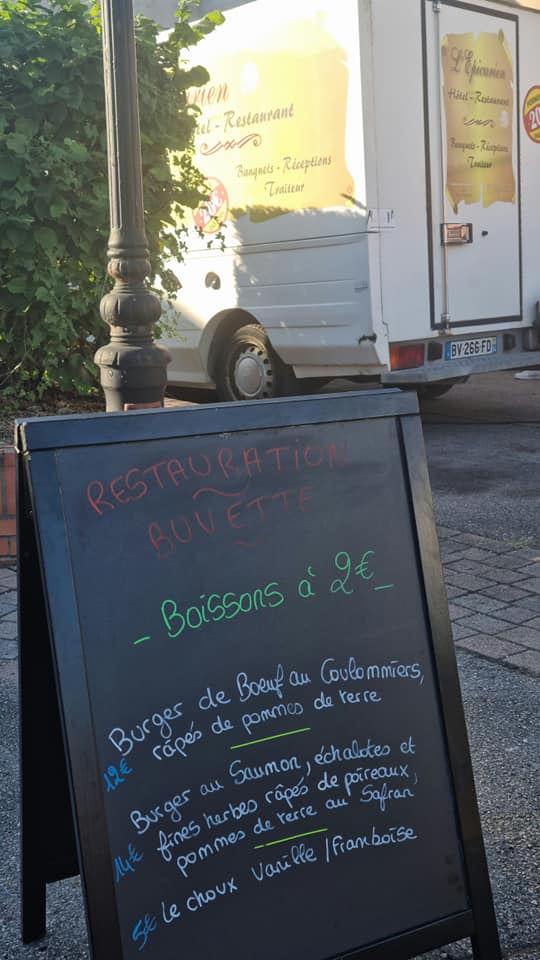 rien
tel - Restaurant
Banquets - Réceptions
Traiteur
L'Epicurien
Hôtel - Restaurant
Banquets - Réceptions
Traiteur
20
BV-266-FD
RESTAURATION
BUVETTE
- Boissons à 2€ -
Burger de Boeuf au Coulommiers,
râpés de pommes de terre
12€
Burger au Saumon, échalotes et
fines herbes râpés de poireaux,
pommes de terre au Safran
14€
5€ Le choux Vanille / Framboise